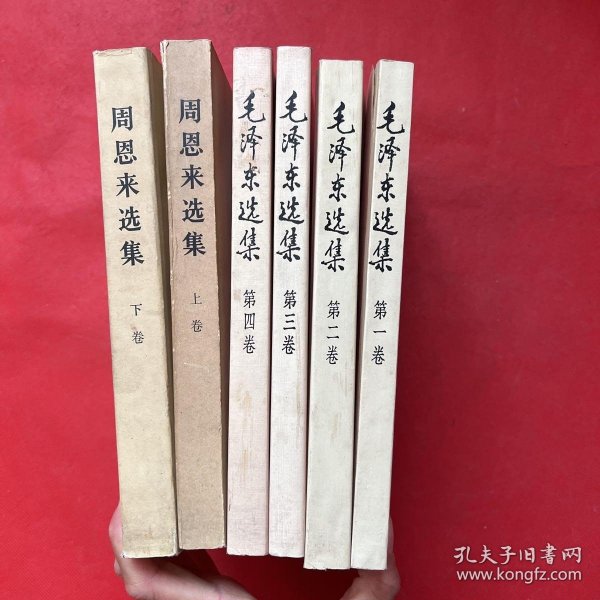 周恩来选集
下卷
周恩来选集
上卷
毛泽东选集
第四卷
毛泽东选集
第三卷
毛泽东选集
第二卷
毛泽东选集
第一卷
孔夫子旧书网
www.kongfz.com